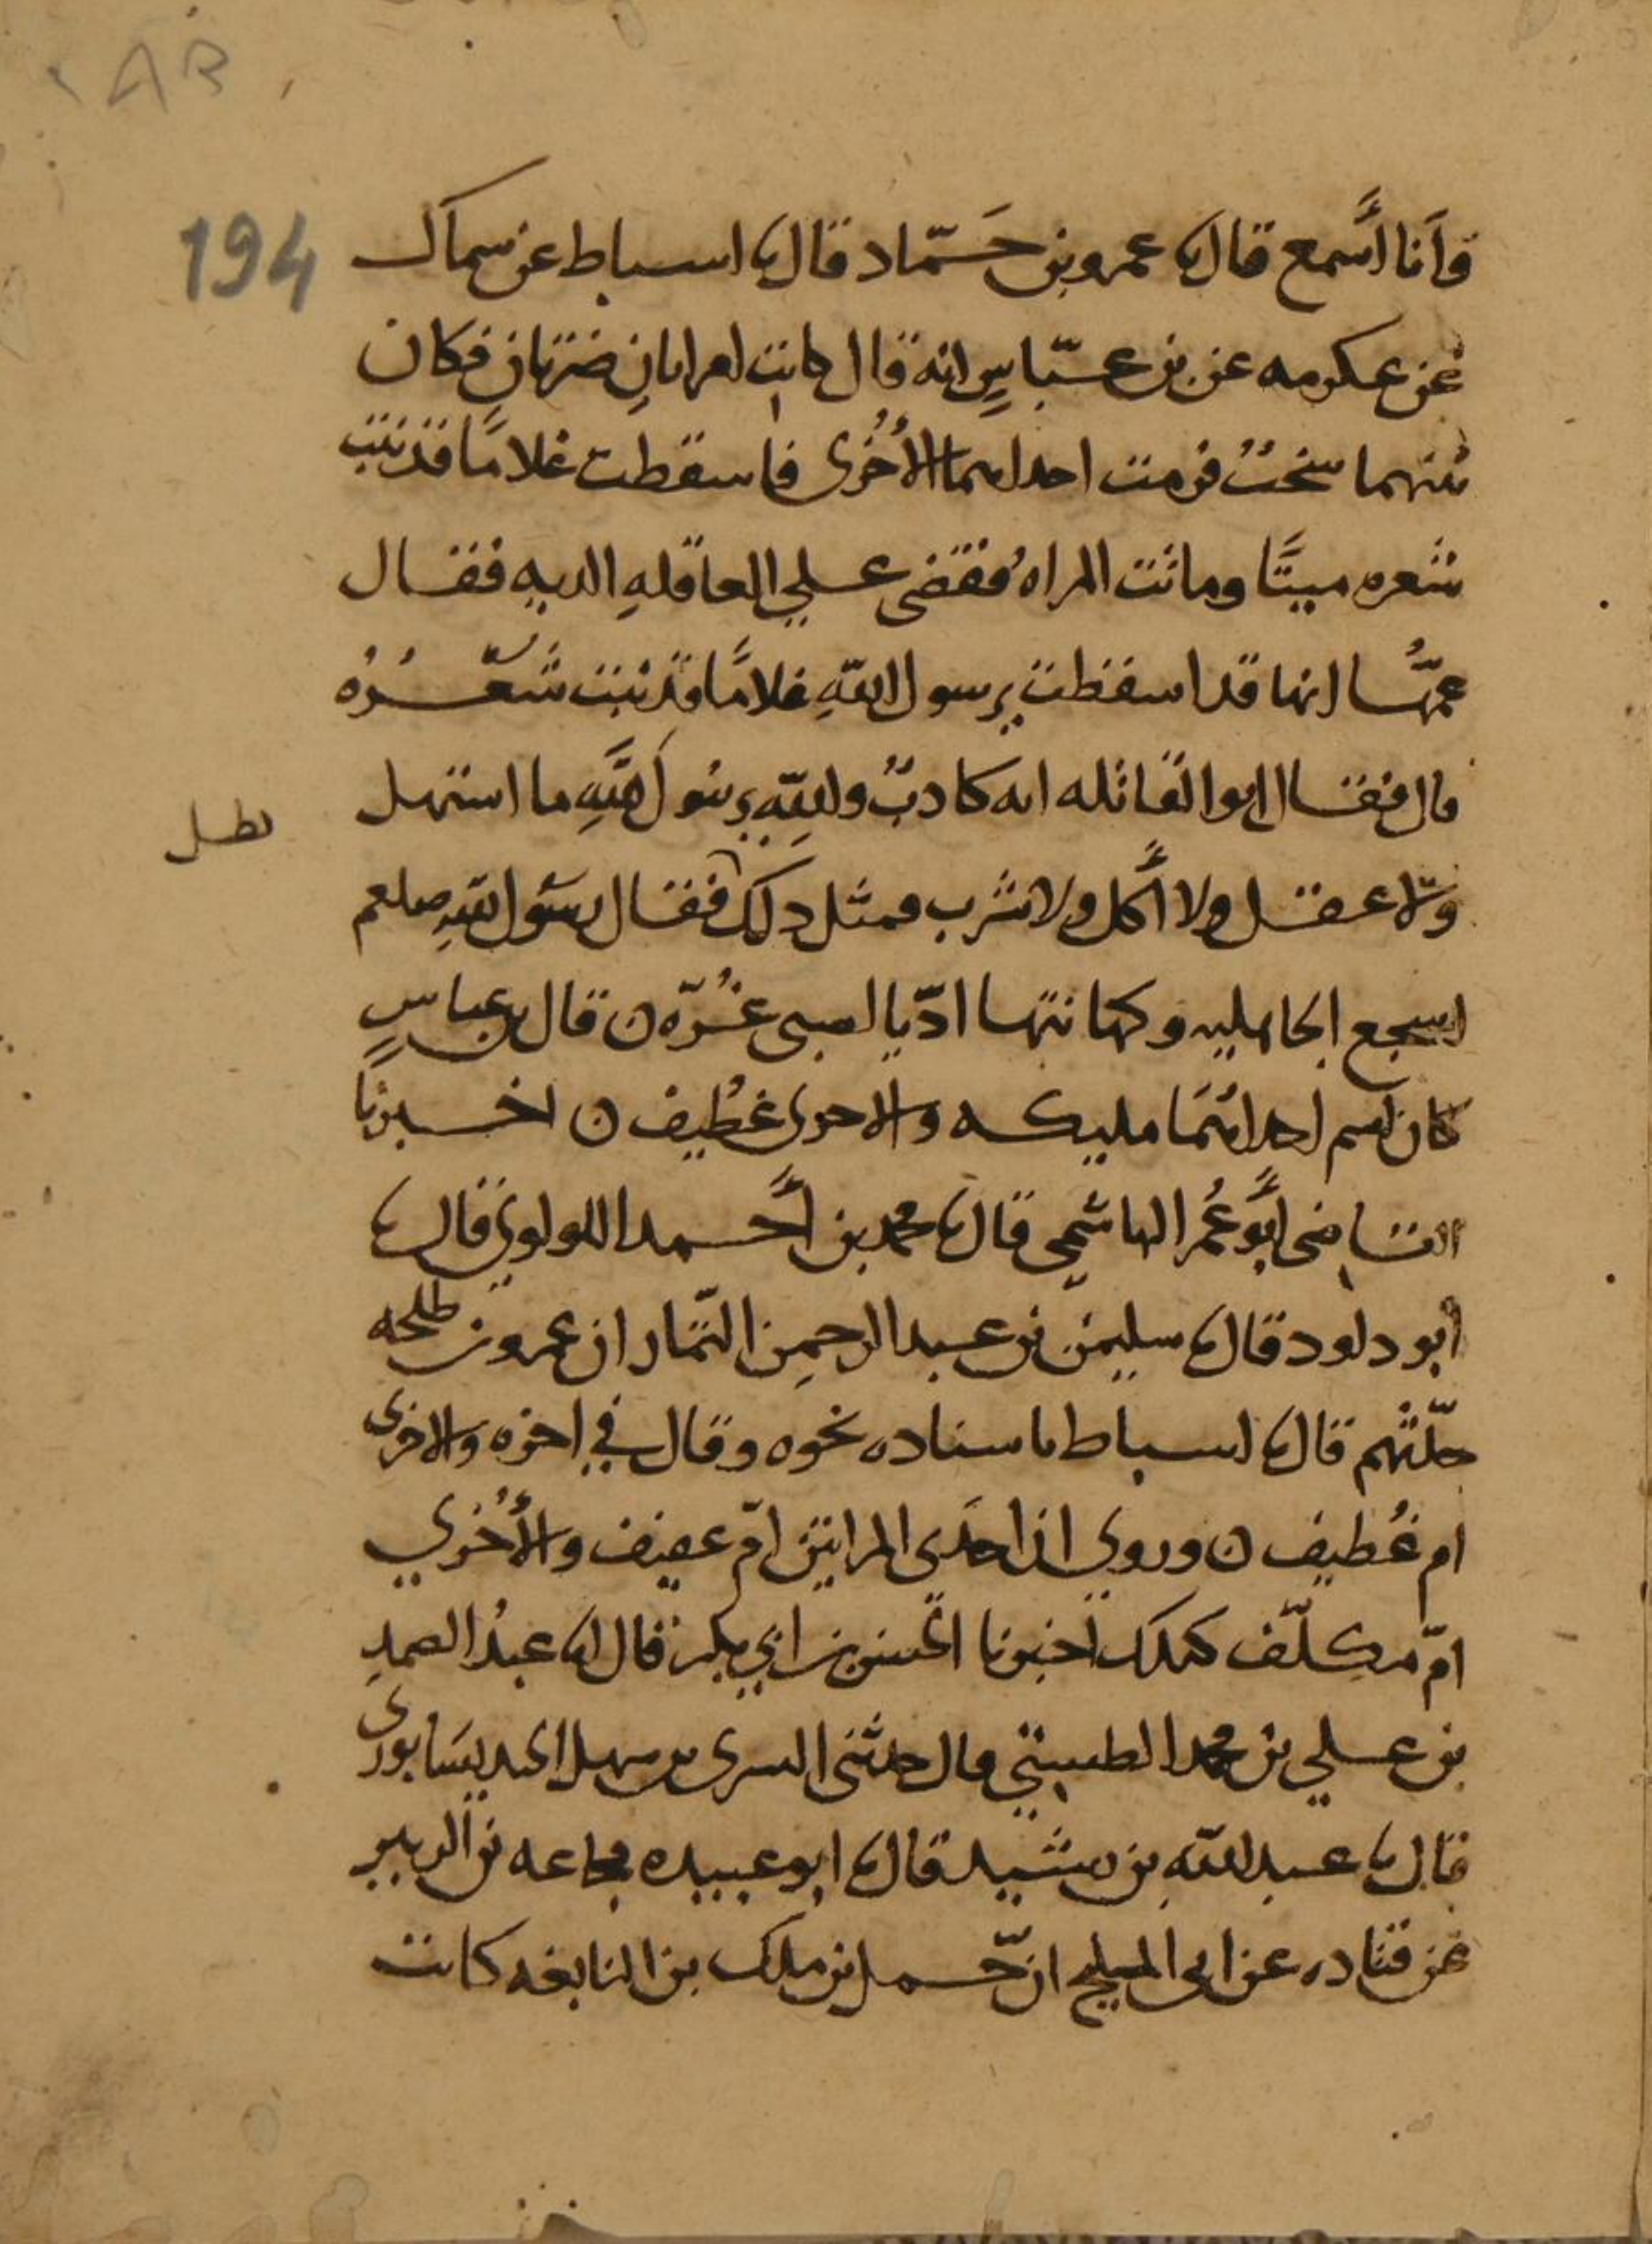 AB
194
وأنا أسمع قال نا عمرو بن حَمّاد قال نا اسباط عن سماك
عن عكرمه عن بن عبّاسٍ انه قال كانت امراتانِ ضرتان فكان
بينهما سخبٌ فرمت احداهما الأُخرى فاسقطت غلامًا قد نبت
شعره ميتًا وماتت المراهُ فقضى علي العاقلهِ الديه فقال
عمّها انها قد اسقطت يرسول اللهِ غلامًا قد نبت شعرُه
قال فقال ابو القاتله انه كاذبٌ واللهِ يرسول اللهِ ما استهل
ولا عقل ولا أكل ولا شرب فمثل ذلك فقال رسول اللهِ صلعم
بطل
اسجع الجاهليه وكهانتها ادّ يا لصبي غُرّه ن قال بن عباسٍ
كان اسم احداهُما مليكه والاخرى غُطيف ن اخبرنا
القاضي أبو عُمر الهاشمي قال نا محمد بن أحمد اللولوي قال نا
ابو داود قال نا سليمن بن عبد الرحمن التمّار ان عمرو بن طلحه
حدّثهم قال نا اسباط باسناده نحوه وقال في اخره والاخرى
ام غُطيف ن وروي ان احدَى المراتين امّ عفيف والأُخري
امّ مكلّف كذلك اخبرنا الحسن بن ابي بكر قال انا عبدُ الصمدِ
بن علي بن محمد الطستي قال حدثني السرى بن سهل الجنديسَابورى
قال نا عبد الله بن رشيد قال نا ابو عبيده مجاعه بن الزبير
عن قتاده عن ابى المليح ان حمل بن ملك بن النابغه كانت